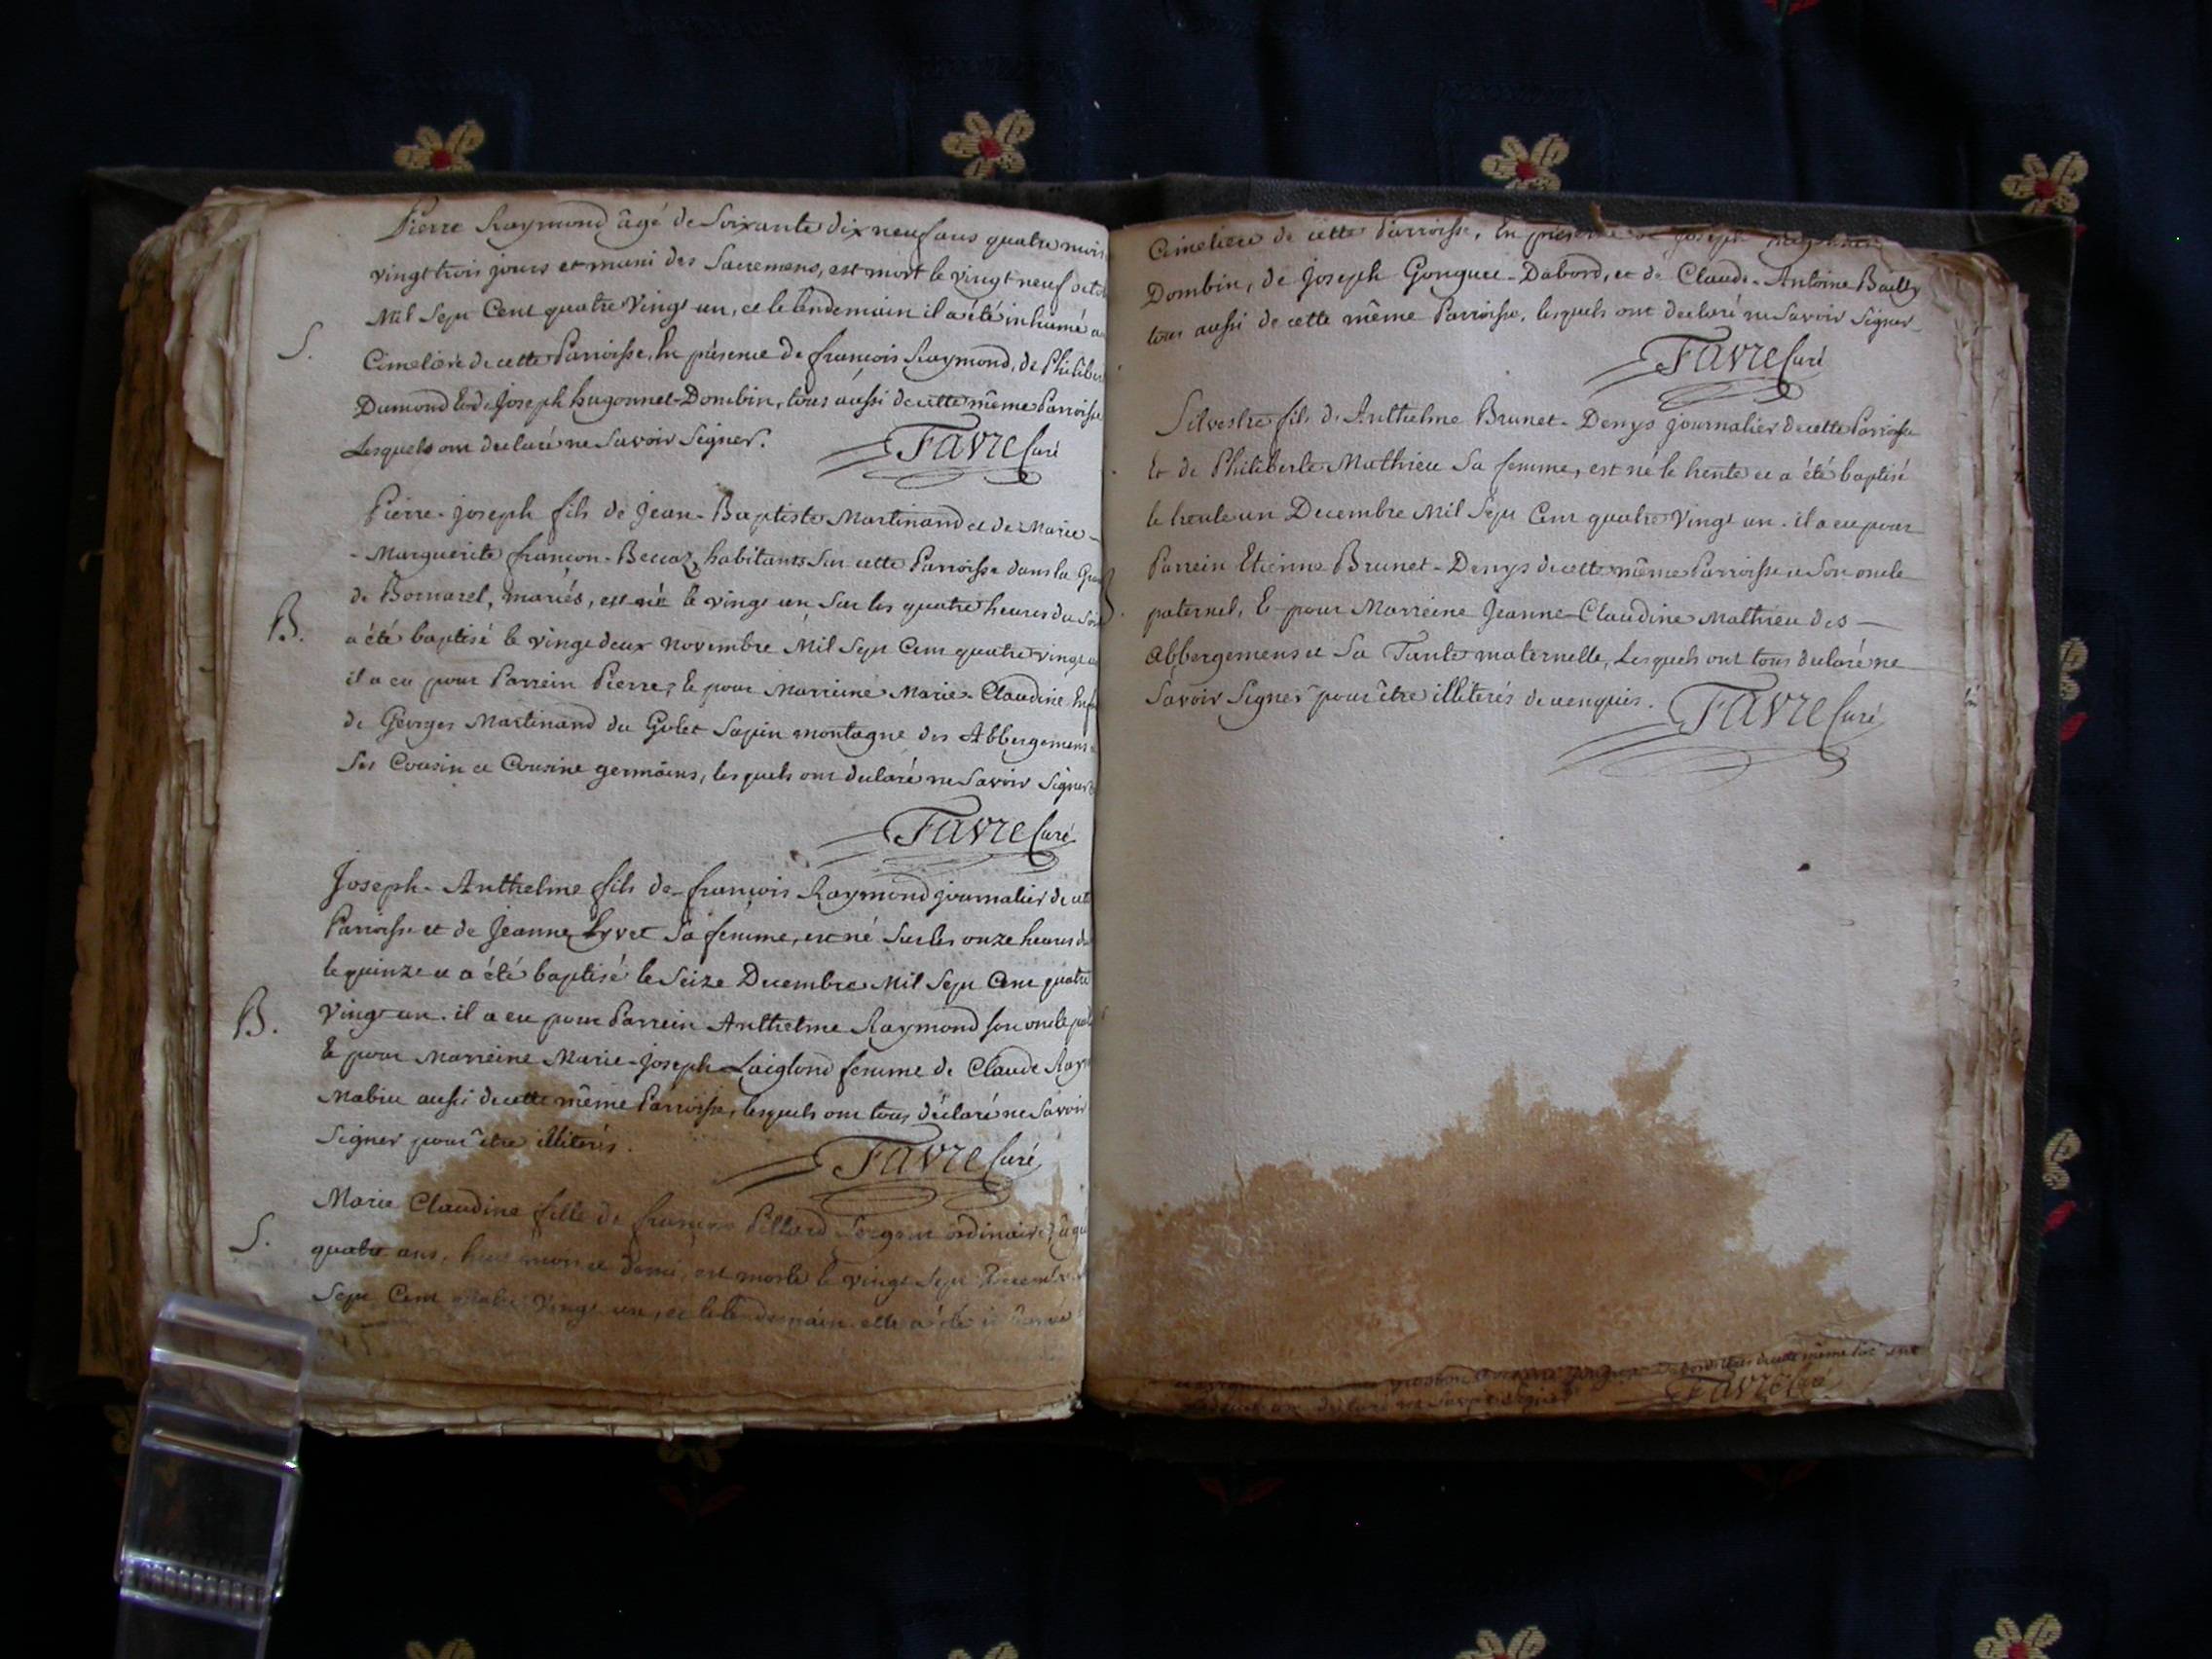 Pierre Raymond âgé de Soixante dix neuf ans quatre mois
vingt trois jours et muni des Sacremens, est mort le vingt neuf octob
Mil Sept Cent quatre Vingt un, et le lendemain il a été inhumé au
S.
Cimetière de cette Parroisse, En présence de françois Raymond, de Philiber
Dumond & de Joseph hugonnet-Dombin, tous aussi de cette même Parroisse
Lesquels ont declaré ne Savoir Signer.
FAVRE Curé
Pierre-Joseph fils de Jean-Baptiste Martinand et de Marie-
-Marguerite françon-Beccaz, habitants Sur cette Parroisse dans la
de Bornarel, mariés, est né le vingt un Sur les quatre heures du Soir
B.
a été baptisé le vingt deux Novembre Mil Sept Cent quatre vingt
il a eu pour Parrein Pierre, & pour Marreine Marie-Claudine
de Georges Martinand du Golet Sapin montagne des Abbergemens
Ses Cousin et Cousine germains, lesquels ont declaré ne Savoir Signer
FAVRE Curé
Joseph-Anthelme fils de françois Raymond journalier de
Parroisse et de Jeanne Lyvet Sa femme, est né Sur les onze heures
le quinze et a été baptisé le Seize Decembre Mil Sept Cent quatre
B.
Vingt un. il a eu pour Parrein Anthelme Raymond son oncle
& pour Marreine Marie-Joseph Laiglond femme de Claude Raym
Mabiu aussi de cette même Parroisse, lesquels ont tous déclaré ne Savoir
Signer pour être illiterés.
FAVRE Curé
Marie Claudine fille de françois Pillard Sergent ordinaire, âgé
S.
quatre ans, huit mois et demi, est morte le vingt Sept Decembre
Sept Cent quatre Vingt un, et le lendemain elle a été
Cimetiere de cette Parroisse, En présence de Joseph hugonnet
Dombin, de Joseph Gonguet-Dabord, et de Claude-Antoine Bailly
tous aussi de cette même Parroisse, lesquels ont declaré ne Savoir Signer
FAVRE Curé
Silvestre fils d'Anthelme Brunet-Denys journalier de cette Parroisse
& de Philiberte Mathieu Sa femme, est né le trente et a été baptisé
le trente un Decembre Mil Sept Cent quatre Vingt un. il a eu pour
Parrein Etienne Brunet-Denys de cette même Parroisse et Son oncle
paternel, & pour Marreine Jeanne-Claudine Mathieu des
Abbergemens et Sa Tante maternelle, Lesquels ont tous declaré ne
Savoir Signer pour être illiterés de ce enquis.
FAVRE Curé
même
declaré ne Savoir Signer
FAVRE Curé